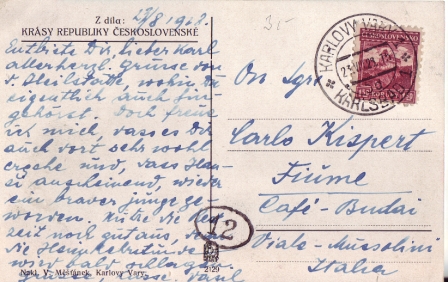 Z díla:
KRÁSY REPUBLIKY ČESKOSLOVENSKÉ
Entbiete Dir, lieber Karl
allerherzl. Grüsse von
d. Heilstätte, wohin Du
eigentlich auch hin
gehörst. Doch freue
ich mich, dass es Dir
auch dort sehr wohl
ergehe und, dass Han-
si anscheinend, wieder
ein braver junge ge-
worden.
zeit noch gut aus, denn
die
wird bald
Grüsse,
Nakl. V. Meifánek, Karlovy Vary.
12
2129
3.-
KARLOVY VARY
KARLSBAD
ČESKOSLOVENSKO
On Sgre
Carlo Kispert
Fiume
Café-Budai
Viale-Mussolini
Italia